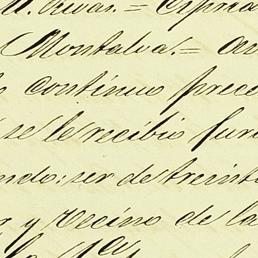 Rivas.= Cipria
Montalva.= an
continuo proce
se le recibió jura
ndo: ser de treinta
y vecino de la